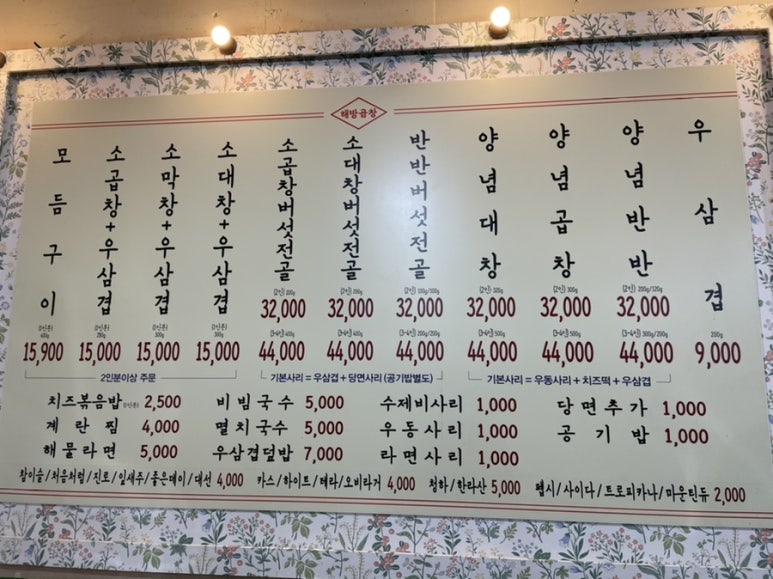 해방곱창
모듬구이
(1인분) 400g
15,900
소곱창+우삼겹
(1인분) 250g
15,000
소막창+우삼겹
(1인분) 300g
15,000
소대창+우삼겹
(1인분) 300g
15,000
2인분이상 주문
소곱창버섯전골
(2인) 200g
32,000
(3~4인) 400g
44,000
소대창버섯전골
(2인) 200g
32,000
(3~4인) 400g
44,000
반반버섯전골
(2인) 100g/100g
32,000
(3~4인) 200g/200g
44,000
기본사리 = 우삼겹 + 당면사리 (공기밥별도)
양념대창
(2인) 300g
32,000
(3~4인) 500g
44,000
양념곱창
(2인) 300g
32,000
(3~4인) 500g
44,000
양념반반
(2인)
32,000
(3~4인) 300g/200g
44,000
기본사리 = 우동사리 + 치즈떡 + 우삼겹
우삼겹
200g
9,000
치즈볶음밥 (1인분) 2,500
계란찜 4,000
해물라면 5,000
비빔국수 5,000
멸치국수 5,000
우삼겹덮밥 7,000
수제비사리 1,000
우동사리 1,000
라면사리 1,000
당면추가 1,000
공기밥 1,000
참이슬/처음처럼/진로/잎새주/좋은데이/대선 4,000 카스/하이트/테라/오비라거 4,000 청하/한라산 5,000 펩시/사이다/트로피카나/마운틴듀 2,000